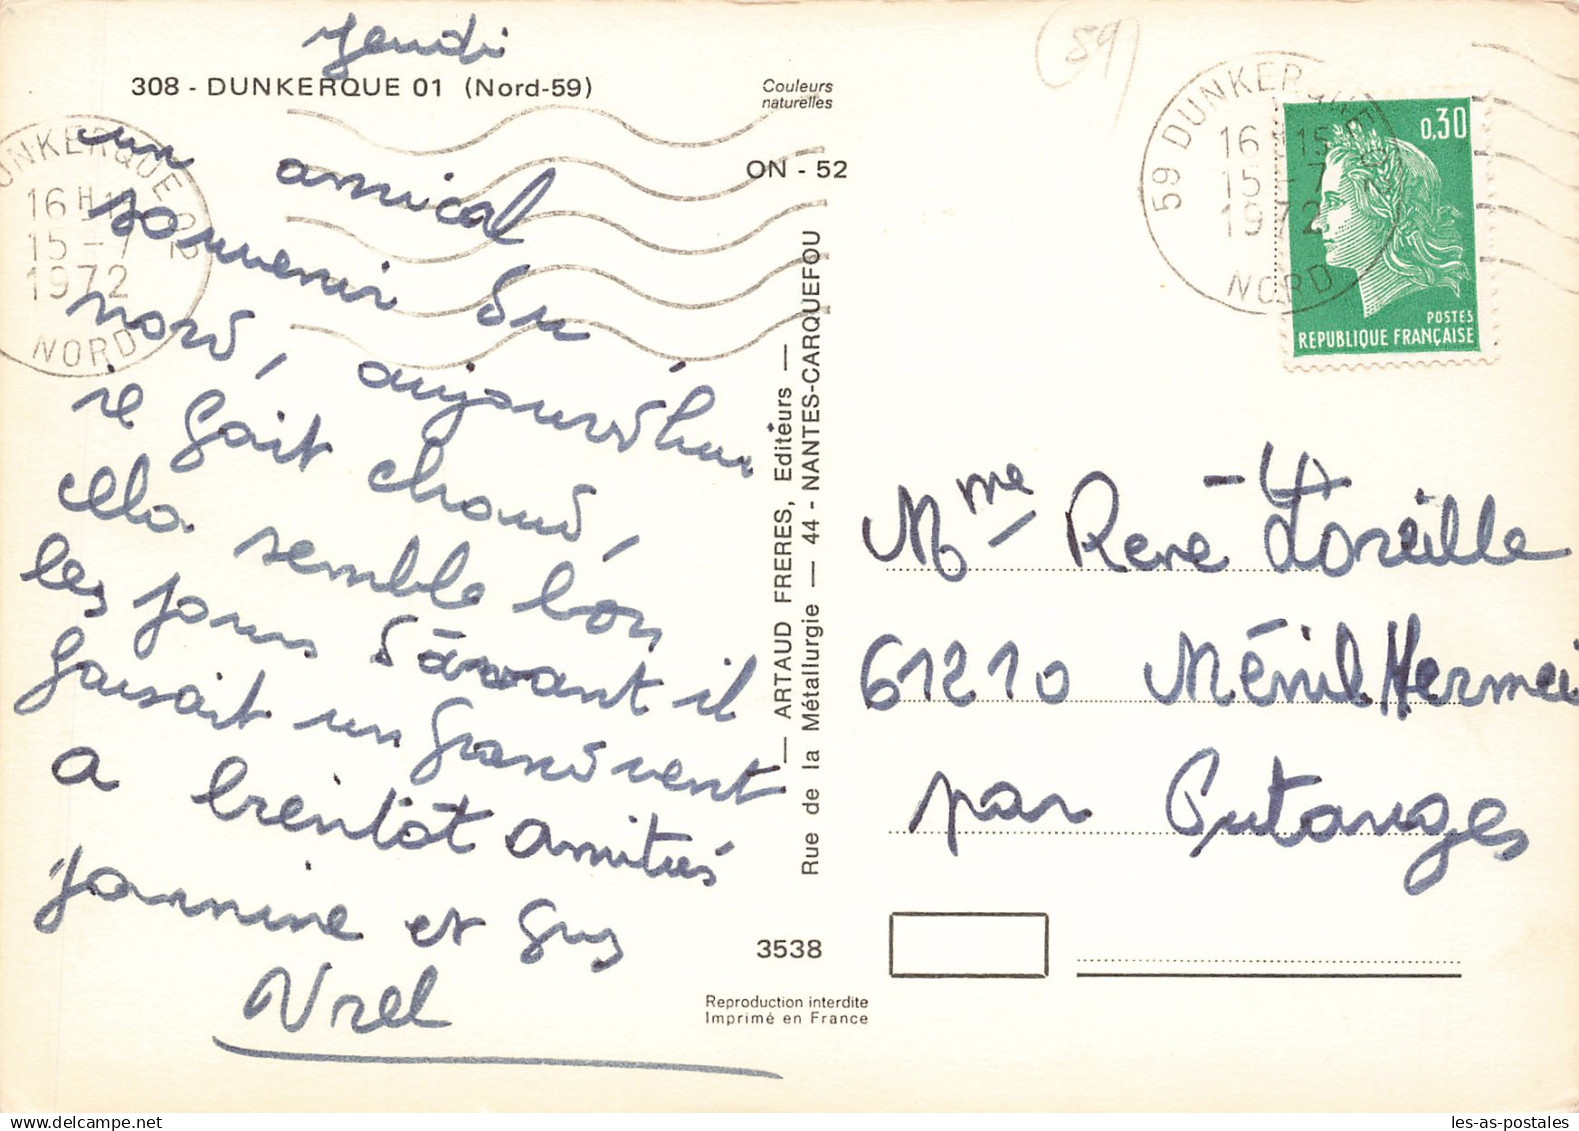 Jeudi
308 - DUNKERQUE 01 (Nord-59)
Couleurs
naturelles
ON - 52
un amical
souvenir du
nord, aujourd'hui
il fait chaud,
cela semble bon
les jours d'avant il
faisait un grand vent
a bientôt amitiés
Jannine et Gus
DUNKERQUE 02
16 H
15 - 7
1972
NORD
— ARTAUD FRERES, Editeurs —
Rue de la Métallurgie — 44 - NANTES-CARQUEFOU
3538
Reproduction interdite
Imprimé en France
(59)
59 DUNKERQUE 02
16 H 15
15 - 7
1972
NORD
0,30
POSTES
REPUBLIQUE FRANÇAISE
Mme René Loreille
61210 Ménil Hermei
par Putanges
les-as-postales